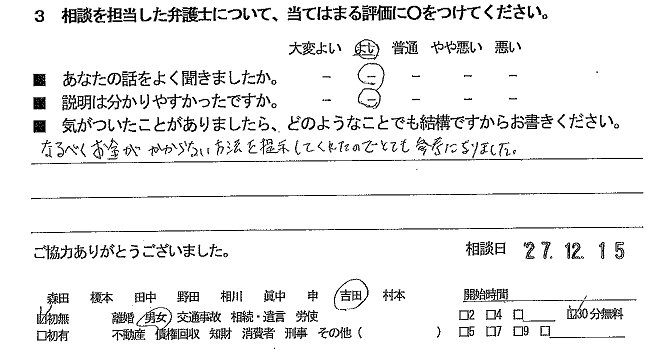 3 相談を担当した弁護士について、当てはまる評価に〇をつけてください。
大変よい よい 普通 やや悪い 悪い
■ あなたの話をよく聞きましたか。 － － － － －
■ 説明は分かりやすかったですか。 － － － － －
■ 気がついたことがありましたら、どのようなことでも結構ですからお書きください。
なるべくお金がかからない方法を提示してくれたのでとても参考になりました。
ご協力ありがとうございました。 相談日 27.12.15
森田 榎本 田中 野田 相川 眞中 申 吉田 村本 開始時間
☑初無 離婚 男女 交通事故 相続・遺言 労使 □2 □4 □ ☑30分無料
□初有 不動産 債権回収 知財 消費者 刑事 その他( ) □5 □7 □9 □